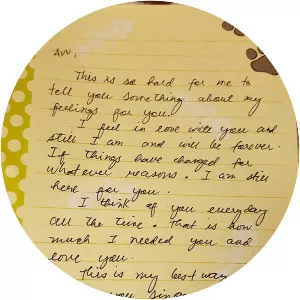 This is so hard for me to
tell you something about my
feelings for you.
I feel in love will you and
still I am and will be forever.
If things have changed for
whatever reasons. I am still
here for you.
I think of you everyday
all the time. That is how
much I needed you and
love you.
This is my best way
you